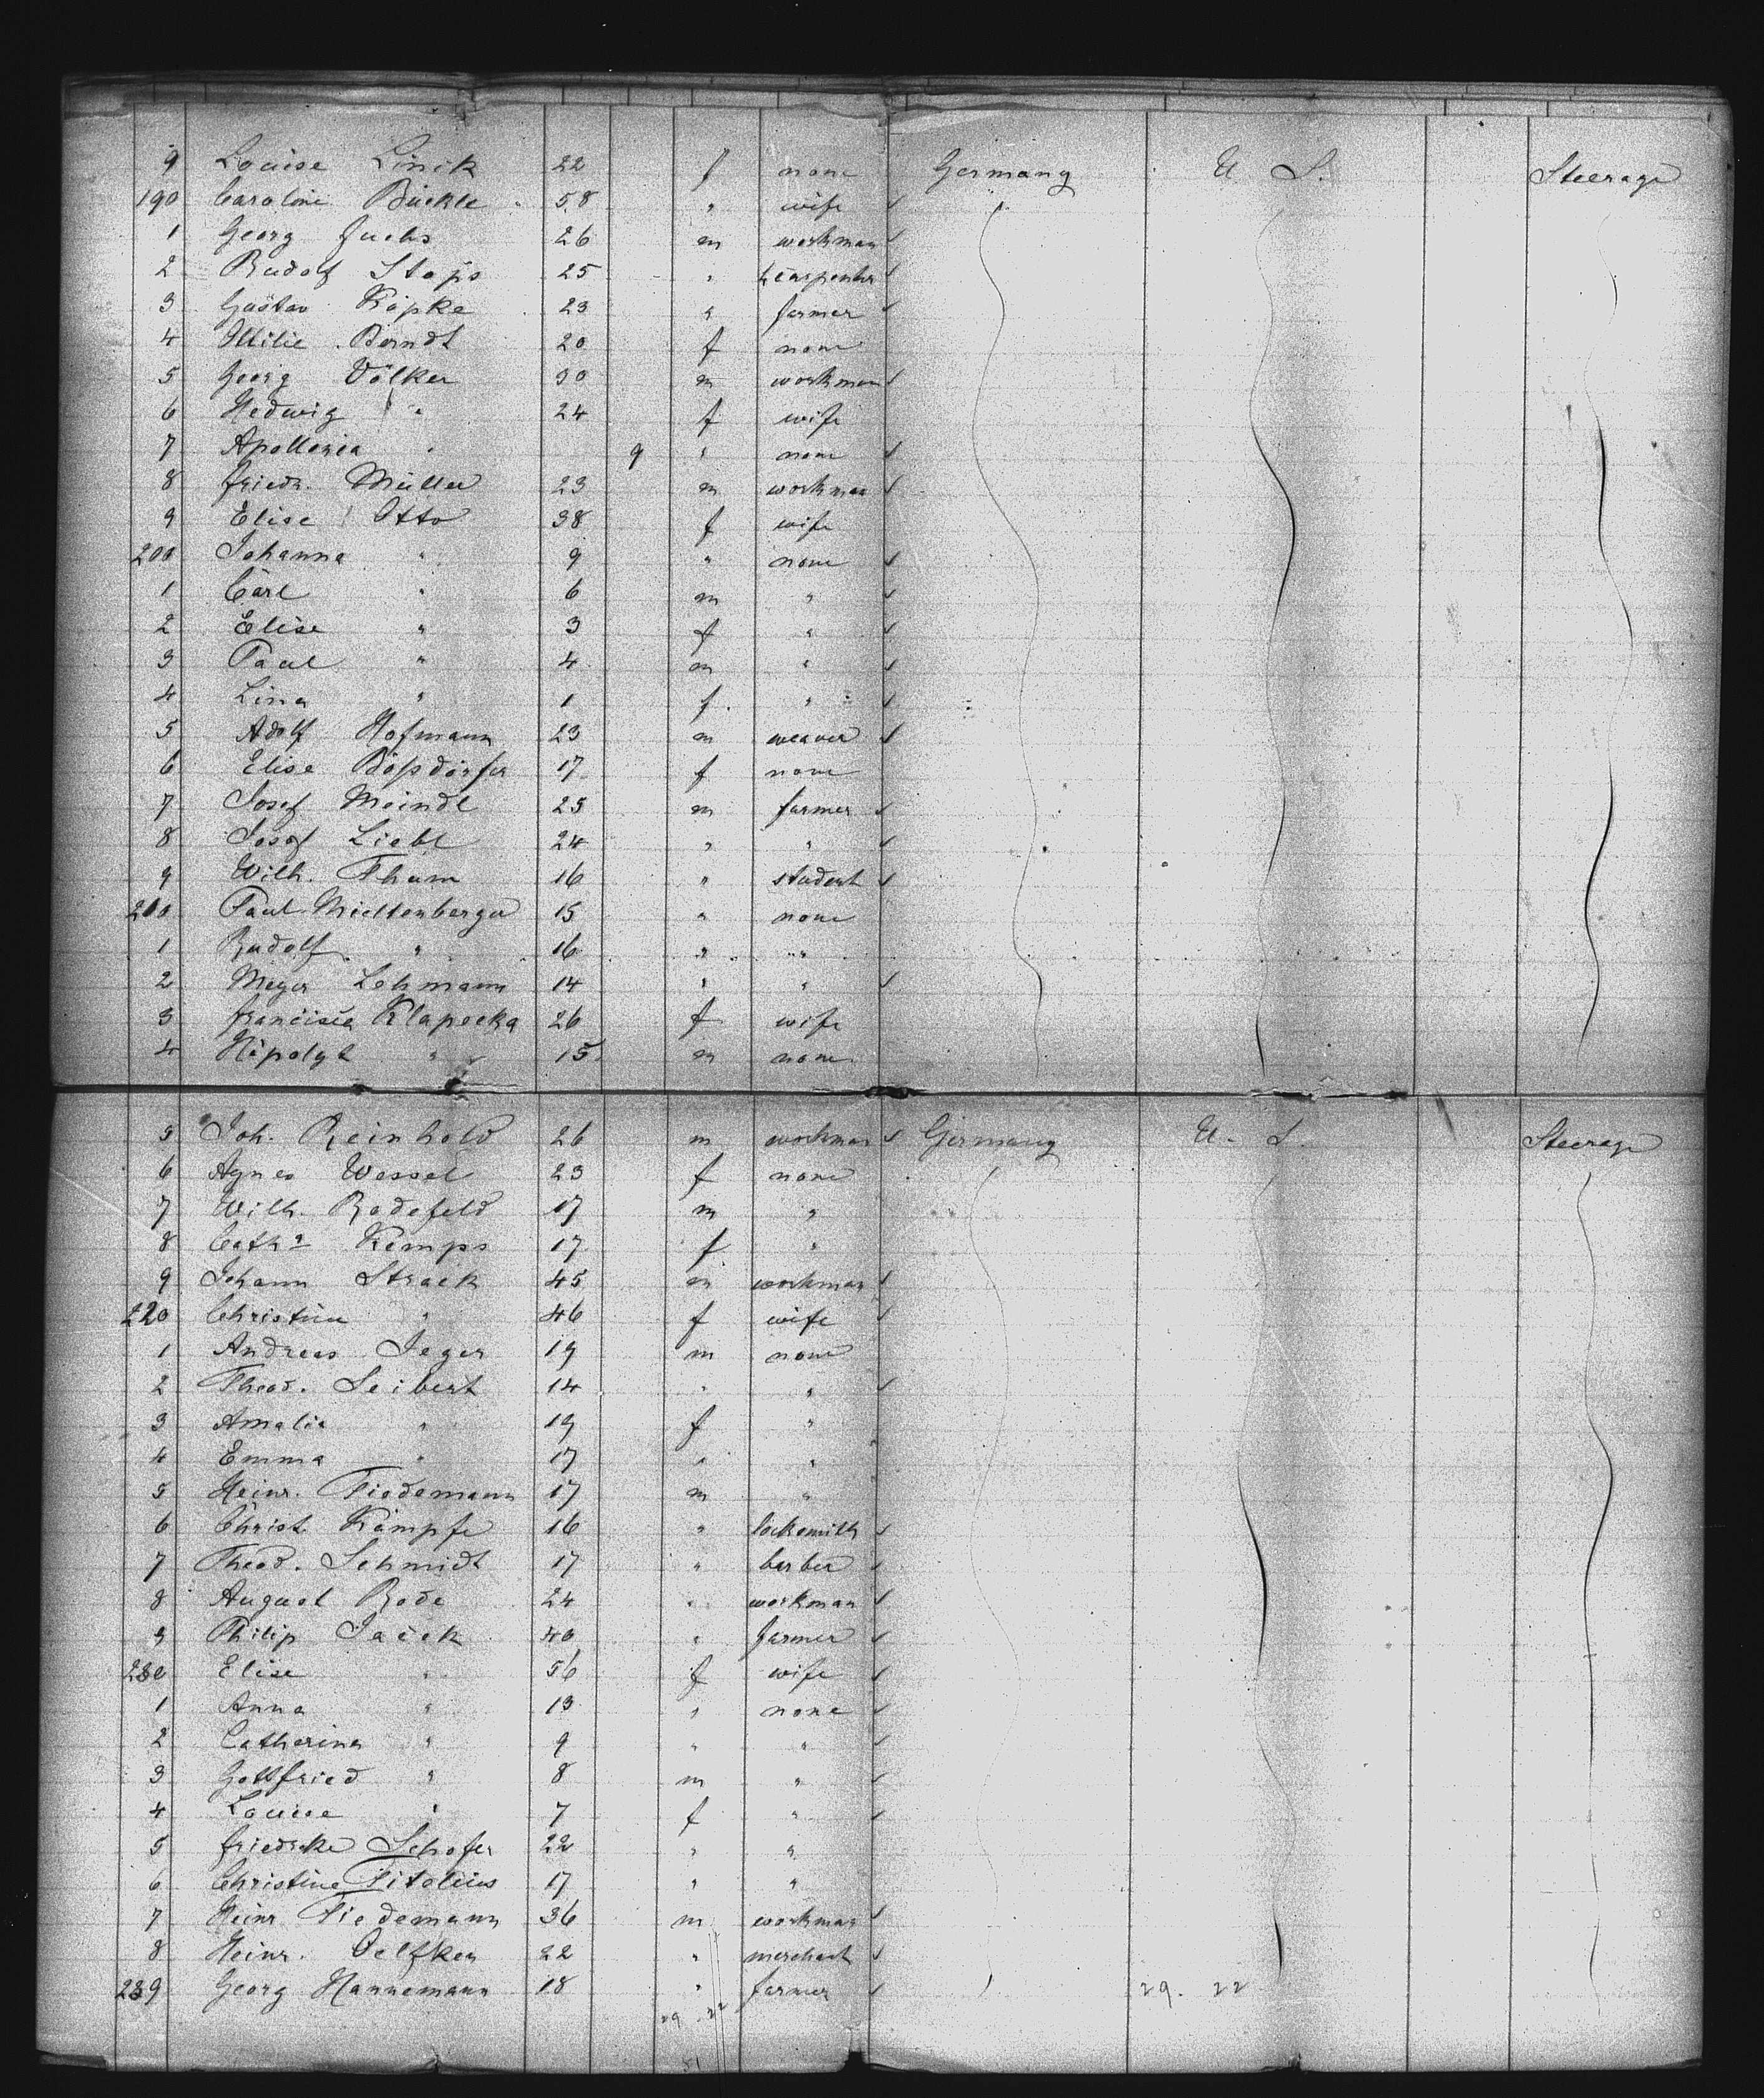 9 Louise Linik 22 f none Germany U S. Steerage
190 Caroline Bückle 58 " wife
1 Georg Fuchs 26 m workman
2 Rudolf Staps 25 " carpenter
3 Gustav Köpke 23 " farmer
4 Ottilie Berndt 20 f none
5 Georg Völker 30 m workman
6 Hedwig " 24 f wife
7 Apollonia " 9 " none
8 Friedr. Müller 23 m workman
9 Elise Otto 38 f wife
200 Johanna " 9 " none
1 Carl " 6 m "
2 Elise " 3 f "
3 Paul " 4 m "
4 Lina " 1 f "
5 Adolf Hofmann 23 m weaver
6 Elise 17 f none
7 Josef Meindl 25 m farmer
8 Josef Liebl 24 " "
9 Wilh. Tham 16 " student
210 Paul Miltenberger 15 " none
1 Rudolf " 16 " "
2 Meyer Lehmann 14 " "
3 Francisca Klapecka 26 f wife
4 Hipolyt " 15 m none
5 Joh. Reinhold 26 m workman Germany U. S. Steerage
6 Agnes Wessel 23 f none
7 Wilh. Radefeld 17 m "
8 Cath. Kemps 17 f "
9 Johann Strack 45 m workman
220 Christine " 46 f wife
1 Andreas Jeger 19 m none
2 Theod. Seibert 14 " "
3 Amalia " 19 f "
4 Emma " 17 " "
5 Heinr. Tiedemann 17 m "
6 Christ. Kämpfe 16 " locksmith
7 Theod. Schmidt 17 " barber
8 August Rode 24 " workman
9 Philip Jaeck 40 " farmer
230 Elise " 56 f wife
1 Anna " 13 " none
2 Catharina " 9 " "
3 Gottfried " 8 m "
4 Louise " 7 f "
5 Friedrke Schofer 22 " "
6 Christine 17 " "
7 Heinr Tiedemann 36 m workman
8 Heinr. Oelfken 22 " merchant
239 Georg Hannemann 18 " farmer 29. 22
29 22
51